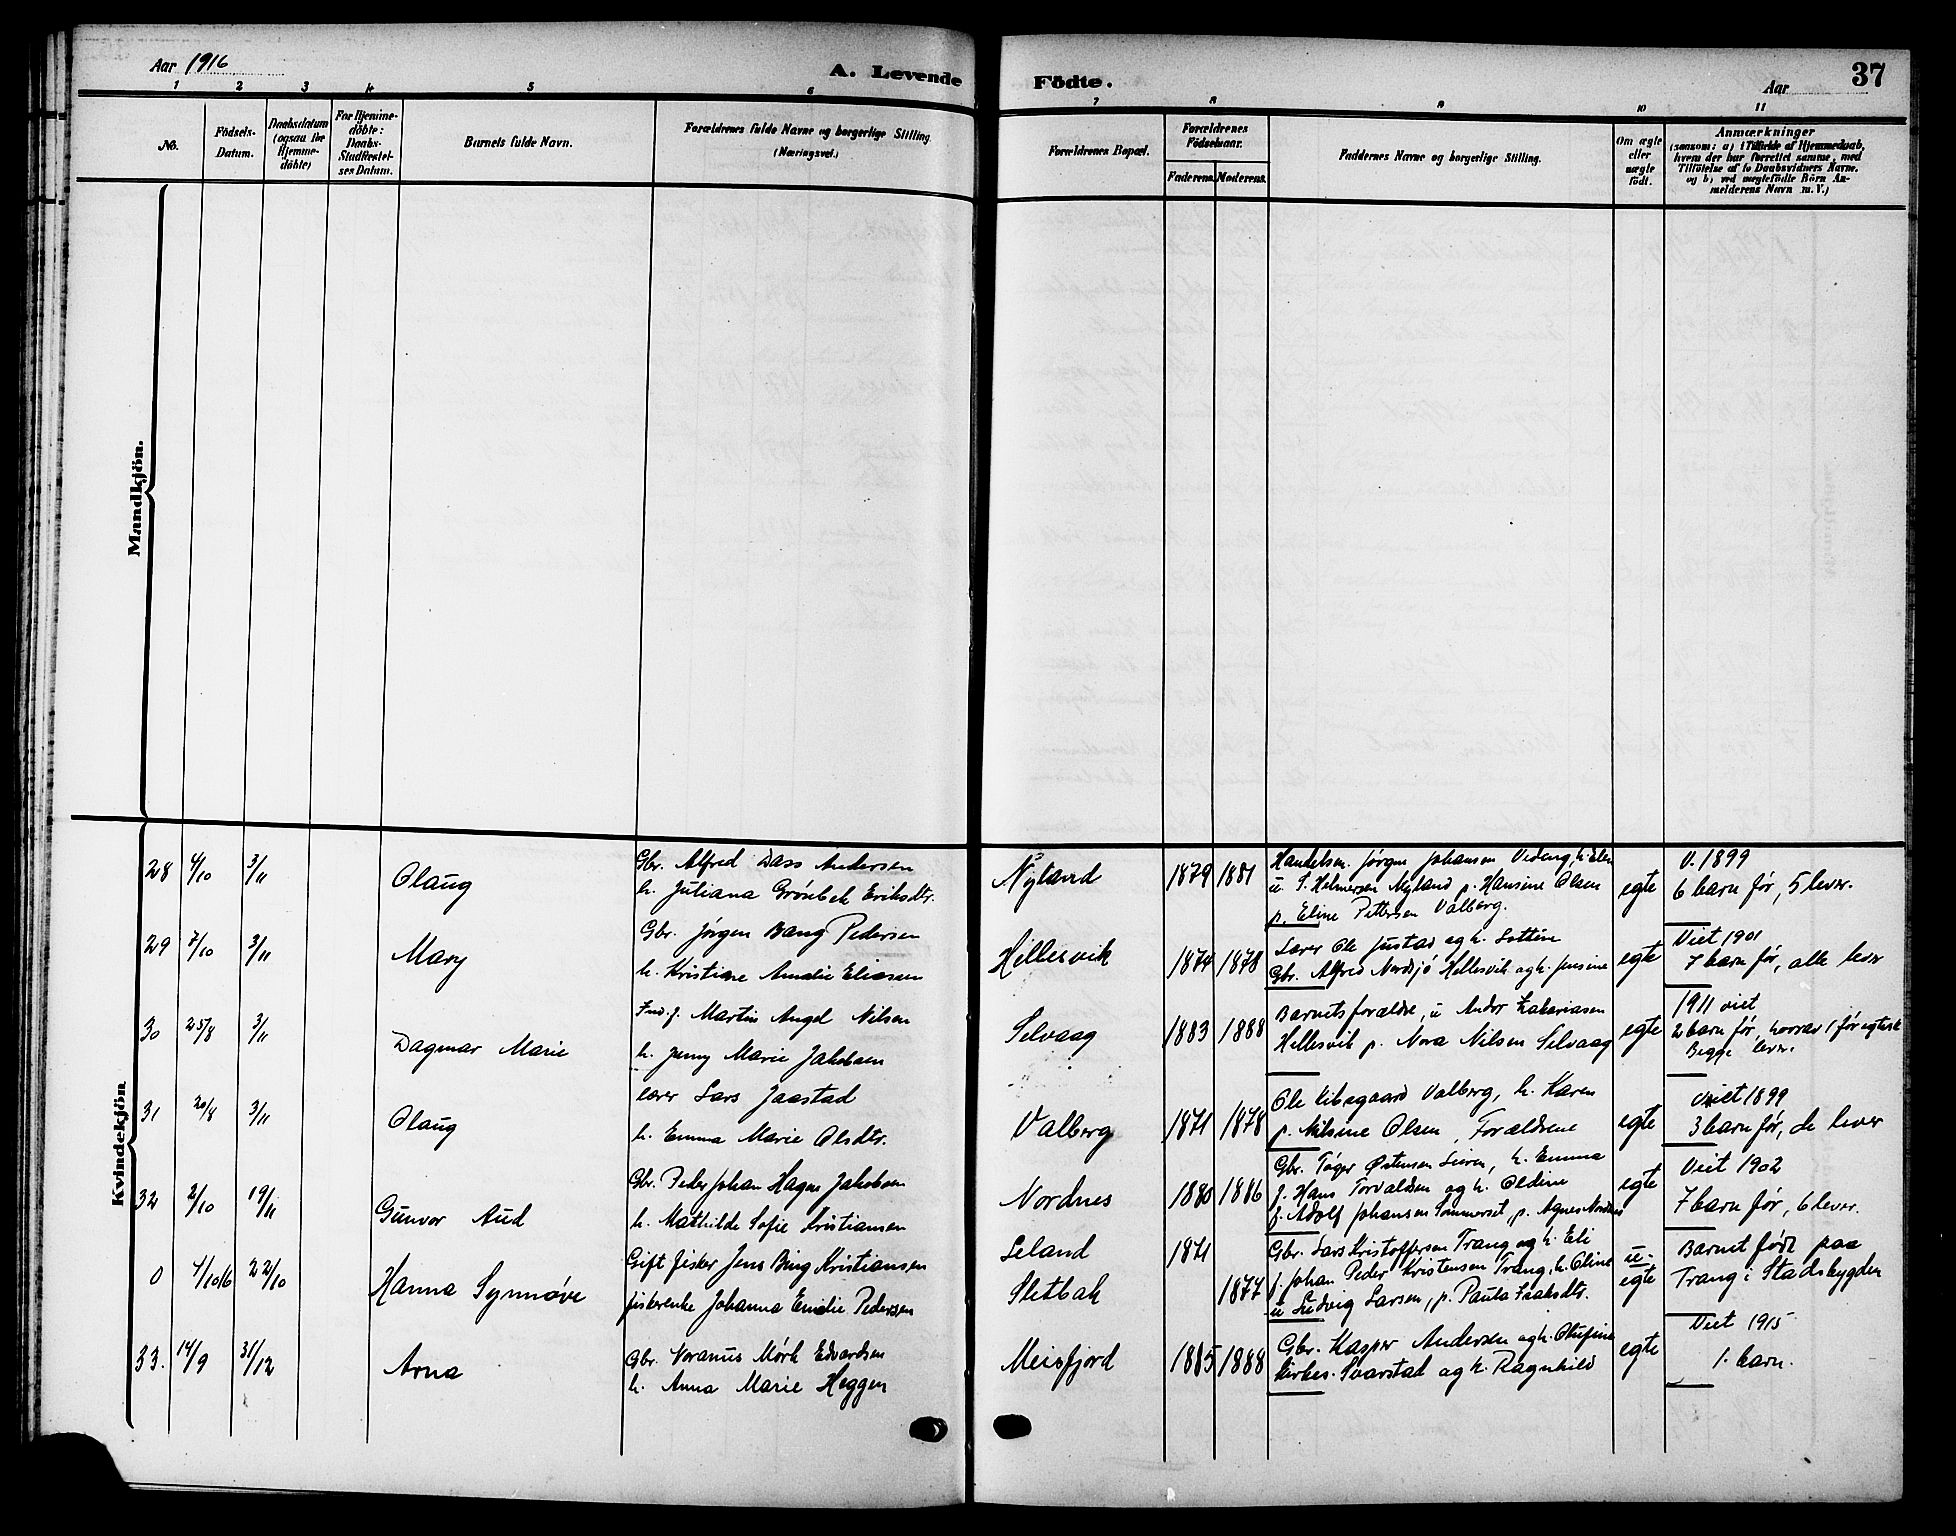 Aar 1916
A. Levende
Födte.
Aar
37
1 2 3 4 5 6 7 8 9 10 11
No.
Födsels-
Datum.
Daabsdatum
(ogsaa for
Hjemme-
döbte)
For Hjemme-
döbte:
Daabs-
Stadfæstel-
ses Datum.
Barnets fulde Navn.
Forældrenes fulde Navne og borgerlige Stilling
(Næringsvei.)
Forældrenes Bopæl.
Forældrenes
Födselsaar.
Faderens. Moderens.
Faddernes Navne og borgerlige Stilling.
Om ægte
eller
uægte
födt.
Anmærkninger
(saasom: a) i Tilfælde af Hjemmedaab,
hvem der har forrettet samme, med
Tilföielse af to Daabsvidners Navne.
og b) ved uægtefödte Börn An-
melderens Navn m. V.)
Mandkjön.
Kvindekjön
28 4/10 3/11
Olaug
Gbr. Alfred Dass Andersen
h. Juliana Grönbek Eriksdtr.
Nyland
1879 1881
Handelsm. Jørgen Johansen Vedeng, h. Elen
u. S. Helmersen Nyland p. Hansine Olsen
p. Eline Pettersen Valberg.
egte
V. 1899
6 barn før, 5 lever.
29 7/10 3/11
Mary
Gbr. Jørgen Bang Pedersen
h. Kristine Amalie Eliasen
Hellesvik
1874 1878
Lærer Ole Justad og h. Lottine
Gbr. Alfred Nordsjö Hellesvik og h. Jensine
egte
Viet 1901
7 barn før, alle lever
30 25/8 3/11
Dagmar Marie
Ind. f. Martin Angel Nilsen
h. Jenny Marie Jakobsen
Selvaag
1883 1888
Barnets forældre, u Andor Zakariasen
Hellesvik p. Nora Nilsen Selvaag
egte
1911 viet
2 barn før, hvorav 1 før egtesk
Begge lever.
31 20/8 3/11
Olaug
Lærer Lars Jaastad
h. Emma Marie Olsdtr.
Valberg
1871 1878
Ole Kibsgaard Valberg, h. Karen
p. Nilsine Olsen, Forældrene
egte
Viet 1899
3 barn før, de lever
32 2/10 19/11
Gunvor Aud
Gbr. Peder Johan Hagen Jakobsen
h. Mathilde Sofie Kristiansen
Nordnes
1880 1886
Gbr. Töger Østensen Leiren, h. Emma
f. Hans Torvaldsen og h. Oldine
f. Adolf Johansen Sommerset, p. Agnes Nordnes
egte
Viet 1902
7 barn før, 6 lever.
0 4/10 16 22/10
Hanna Synnöve
Gift fisker Jens Bing Kristiansen
fiskerenke Johanna Emelie Pedersen
Leland
Sletbak
1871
1877
Gbr. Lars Kristoffersen Trang og h. Eli
f. Johan Peder Kristensen Trang, h. Oline
u Ludvig Larsen, p. Paula Isaksdtr.
u-
egte
Barnet født paa
Trang i Stadsbygden
33. 14/9 31/12
Arna
Gbr. Noranus Mørk Edvardsen
h. Anna Marie Heggen
Meisfjord
1885 1888
Gbr. Kasper Andersen og h. Olufine
Kirkes. Svarstad og h. Ragnhild
egte
Viet 1915
1. barn.